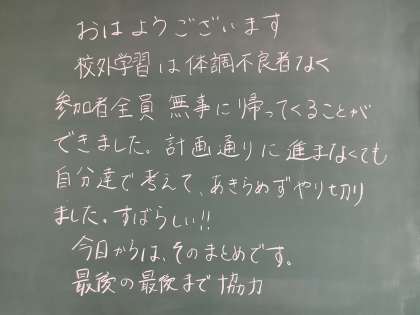 おはようございます
校外学習は体調不良者なく
参加者全員無事に帰ってくることが
できました。計画通りに進まなくても
自分達で考えて、あきらめずやり切り
ました。すばらしい!!
今日からは、そのまとめです。
最後の最後まで協力